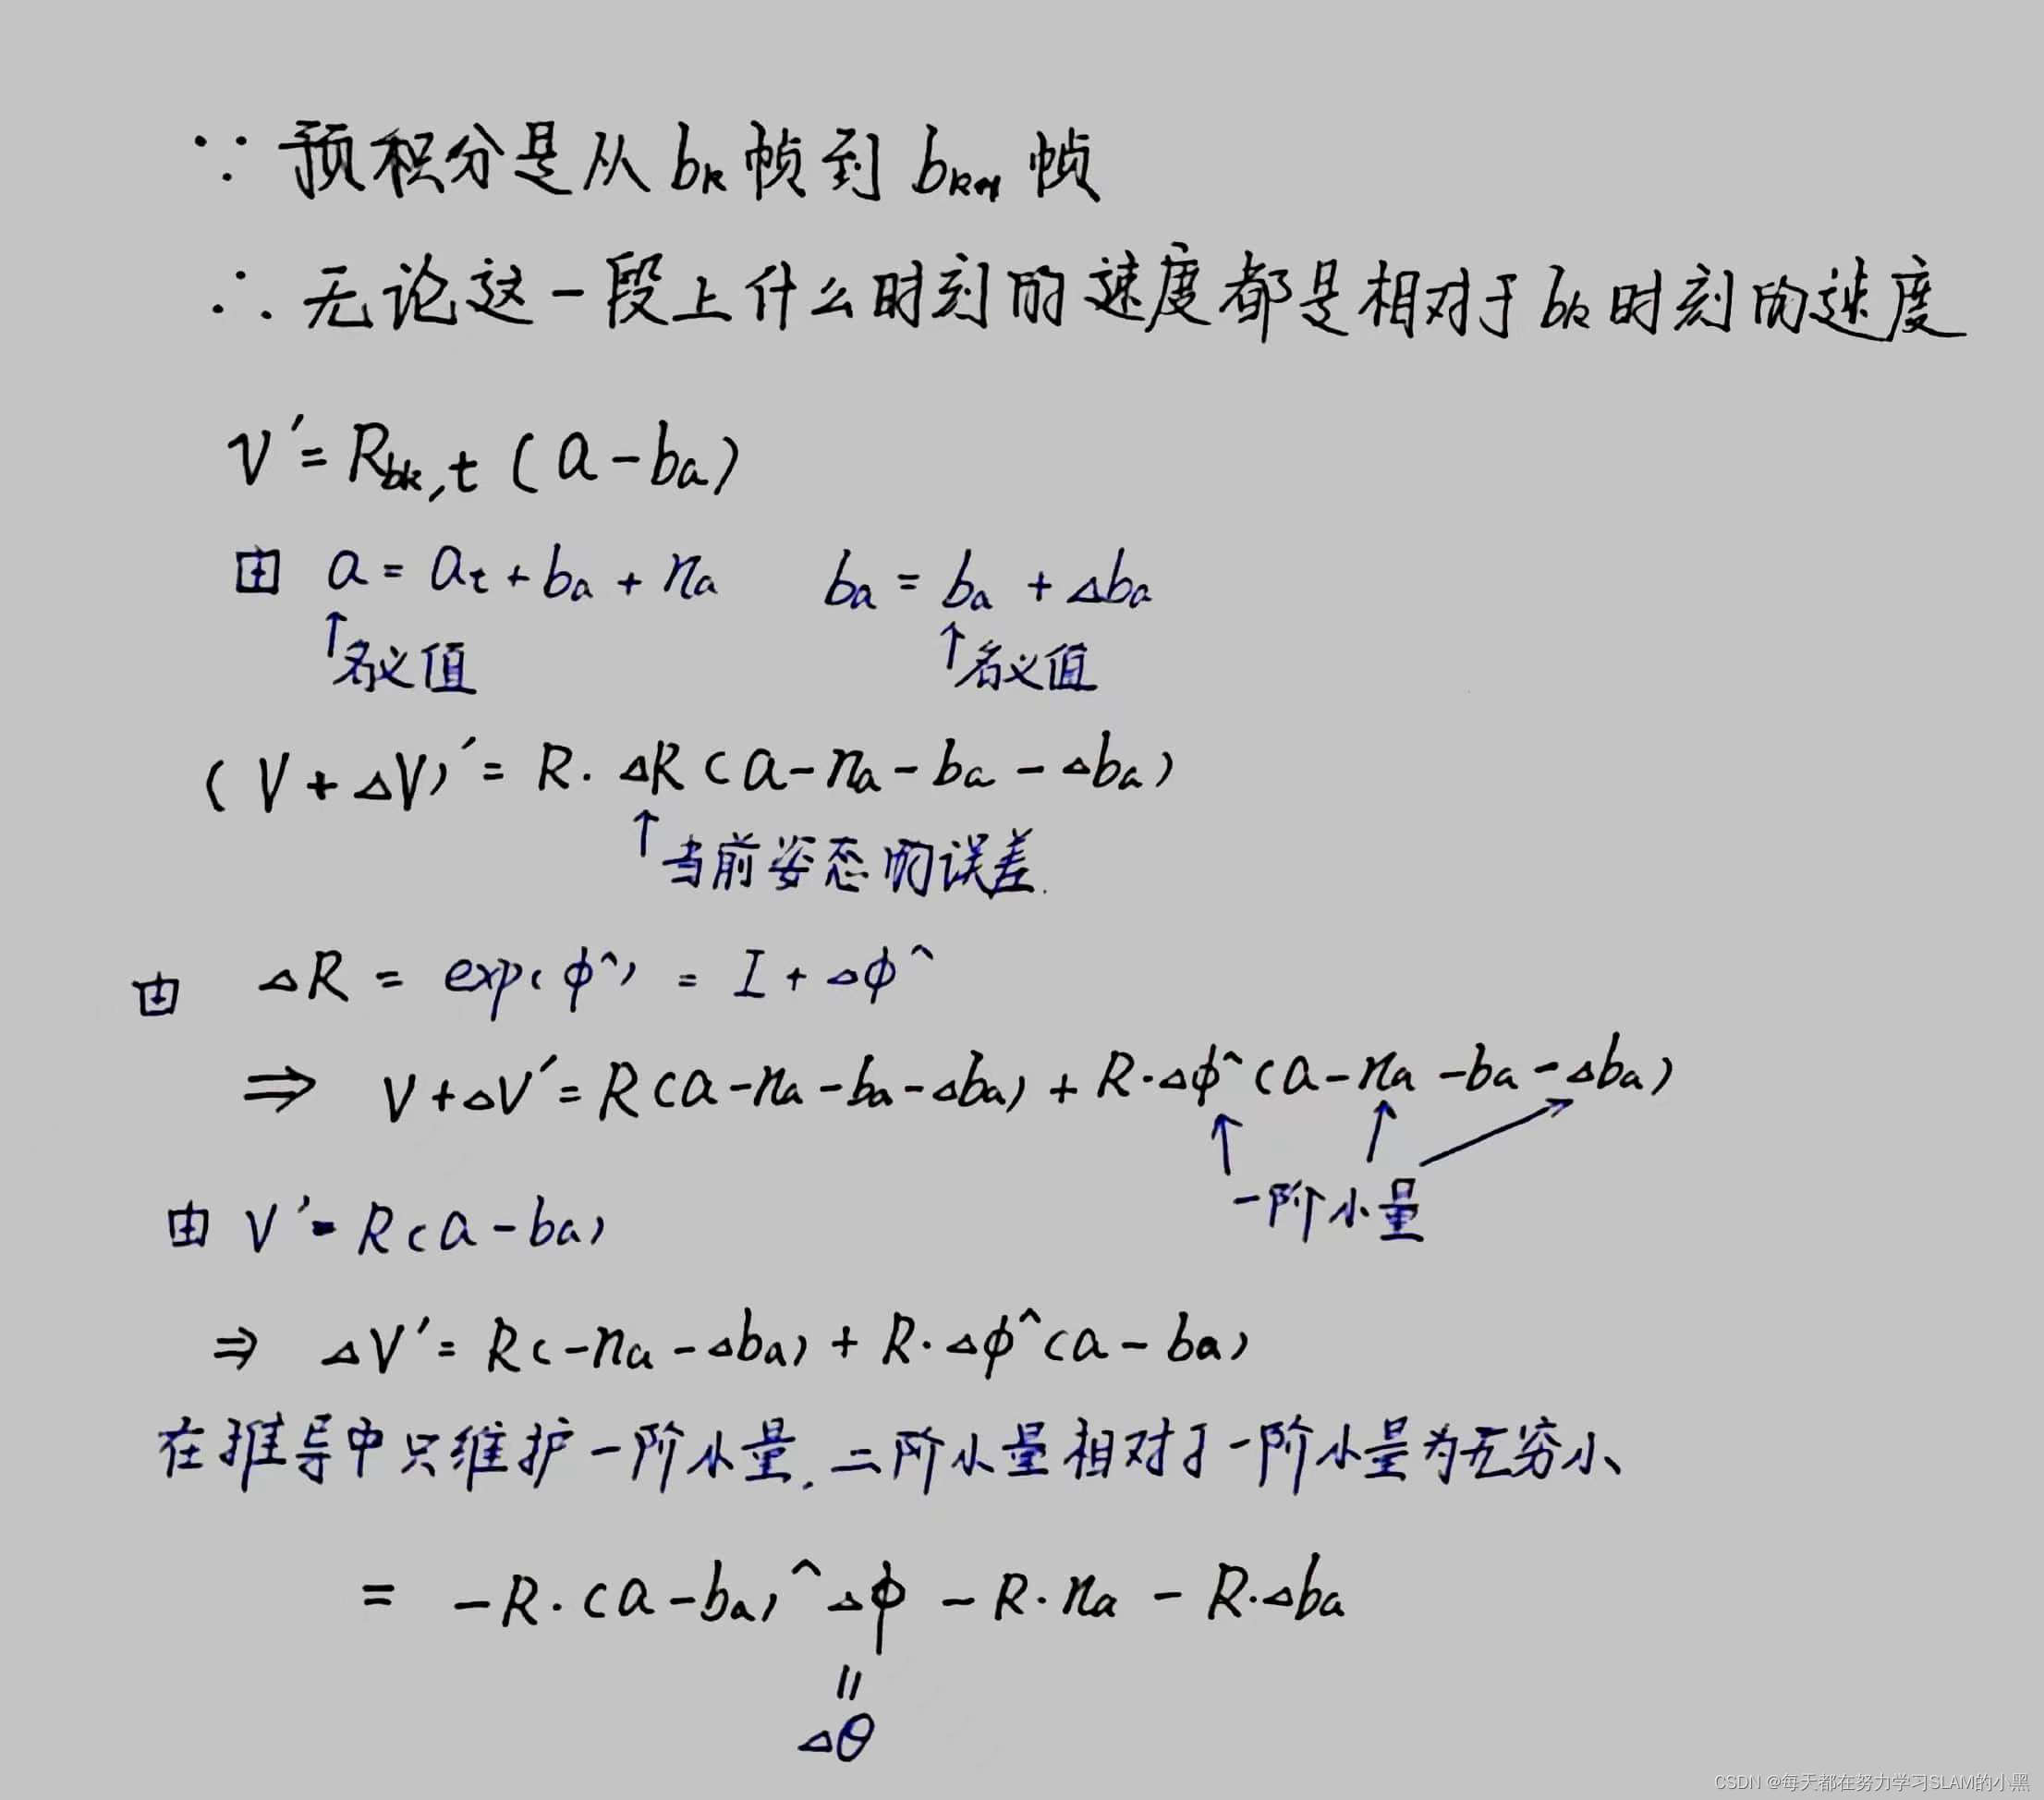 ∵ 预积分是从 bk 帧到 bk+1 帧
∴ 无论这一段上什么时刻的速度都是相对于 bk 时刻的速度
V′ = R_{bk,t} (a - ba)
由 a = at + ba + na ba = ba + Δba
↑名义值 ↑名义值
(V + ΔV)′ = R · ΔR (a - na - ba - Δba)
↑当前姿态的误差.
由 ΔR = exp(φ^) = I + Δφ^
⇒ V + ΔV′ = R(a - na - ba - Δba) + R·Δφ^(a - na - ba - Δba)
一阶小量
由 V′ = R(a - ba)
⇒ ΔV′ = R(-na - Δba) + R·Δφ^(a - ba)
在推导中只维护一阶小量, 二阶小量相对于一阶小量为无穷小
= -R·(a - ba)^Δφ - R·na - R·Δba
||
Δθ
CSDN @每天都在努力学习SLAM的小黑